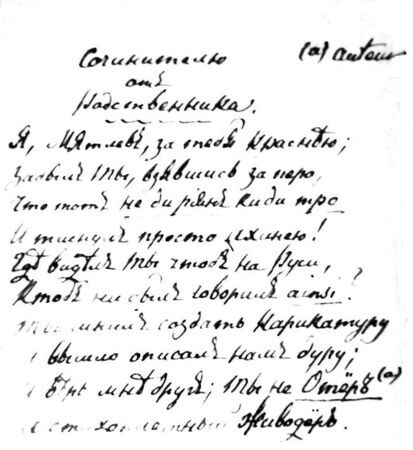 Сочинителю (а) auteur
отъ
родственника.
Я, Мятлевъ, за тебя краснѣю;
Забылъ ты, взявшись за перо,
Что тотъ не ди рьянъ ки ди тро
И тиснулъ просто ахинею!
Гдѣ видѣлъ ты чтобъ на Руси,
Кто бъ ни былъ говорилъ ainsi?
Ты мнилъ создать карикатуру
И вышло описалъ намъ дуру;
И вѣрь мнѣ другъ; ты не Отёръ (а)
А стихоплетный живодёръ.